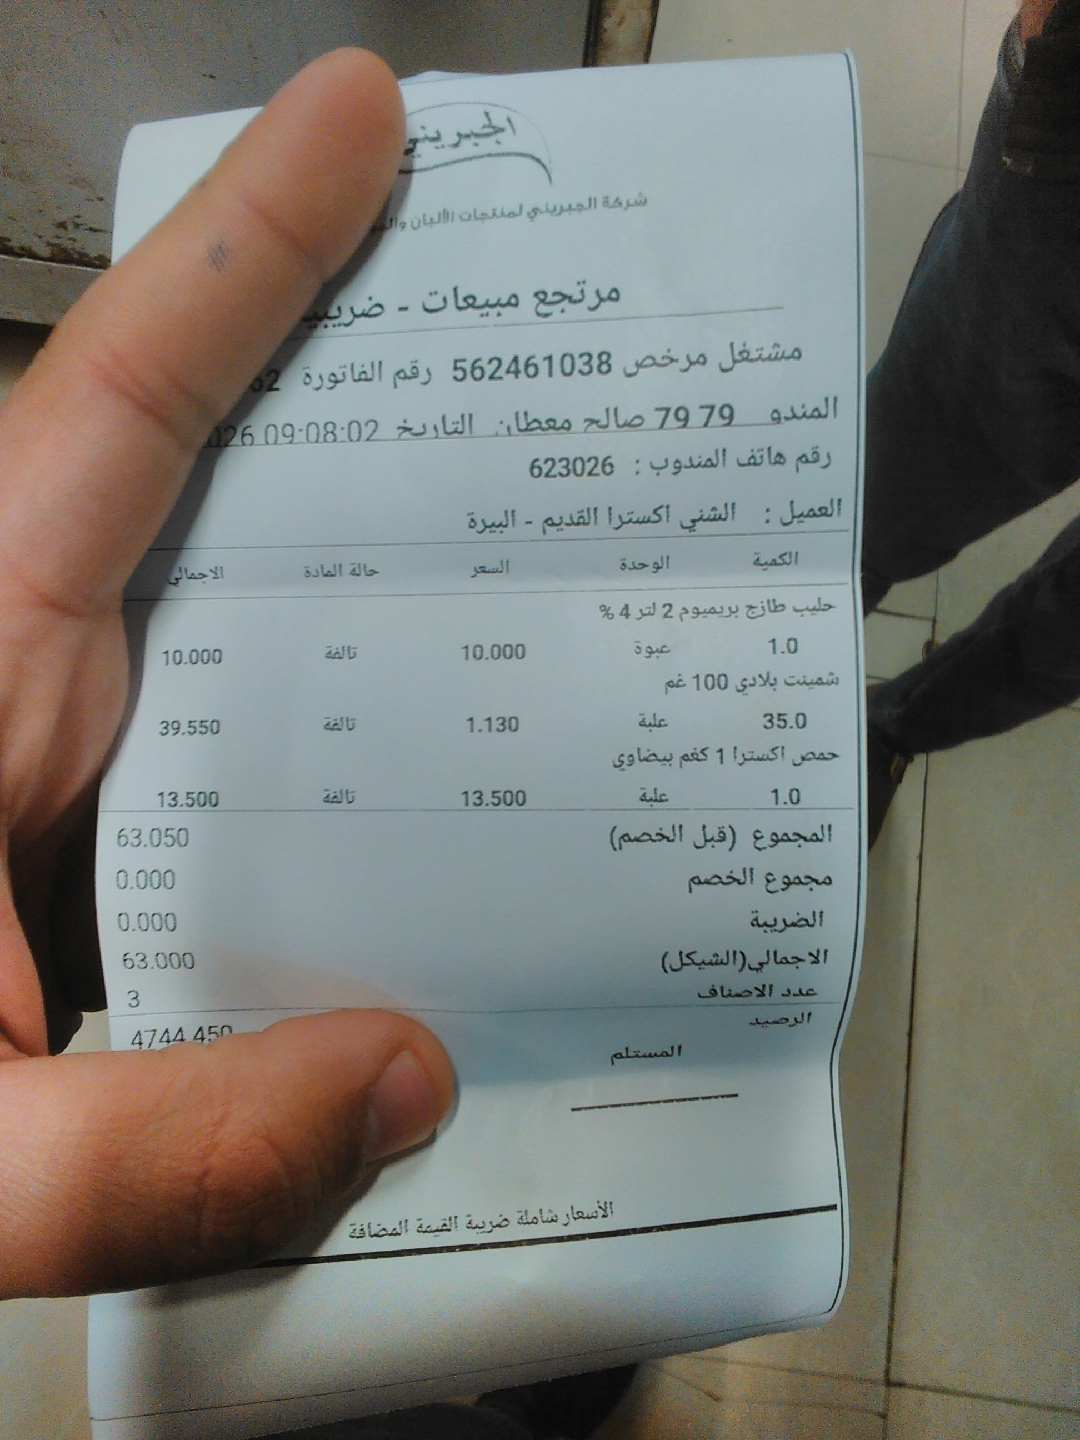 الجبريني
شركة الجبريني لمنتجات الألبان
مرتجع مبيعات -
مشتغل مرخص 562461038 رقم الفاتورة
المندو 79 79 صالح معطان التاريخ 09:08:02
رقم هاتف المندوب : 623026
العميل : الشني اكسترا القديم - البيرة
الكمية الوحدة السعر حالة المادة الاجمالي
حليب طازج بريميوم 2 لتر 4 %
1.0 عبوة 10.000 تالفة 10.000
شمينت بلادي 100 غم
35.0 علبة 1.130 تالفة 39.550
حمص اكسترا 1 كغم بيضاوي
1.0 علبة 13.500 تالفة 13.500
المجموع (قبل الخصم) 63.050
مجموع الخصم 0.000
الضريبة 0.000
الاجمالي(الشيكل) 63.000
عدد الاصناف 3
الرصيد 4744.450
المستلم
الأسعار شاملة ضريبة القيمة المضافة